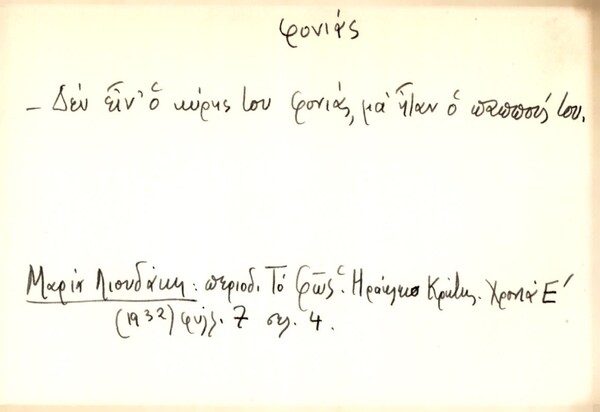 φονιάς
– Δὲν εἶν' ὁ κύρης του φονιάς, μὰ ἦταν ὁ παππούς του.
Μαρία Λιουδάκη: περιοδ. Τὸ Φῶς. Ἡράκλειο Κρήτης. Χρονιά Ε'
(1932) φύλ. 7 σελ. 4.